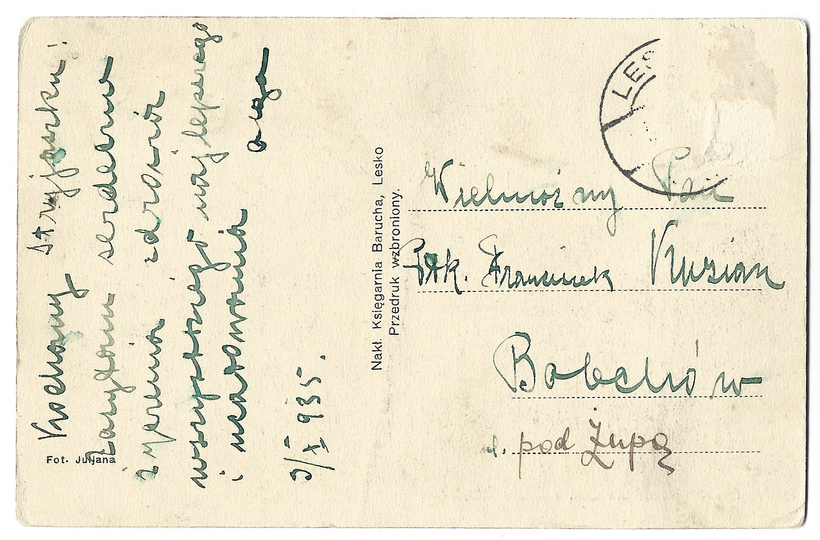 Kochany Stryjaszku!
Zasyłam serdeczne
życzenia zdrowia
wszystkiego najlepszego
i ucałowania
3/X 935.
Fot. Juljana
Nakł. Księgarnia Barucha, Lesko
Przedruk wzbroniony.
LES
Wielmożny Pan
Franciszek
Bolechów
pod Żupą